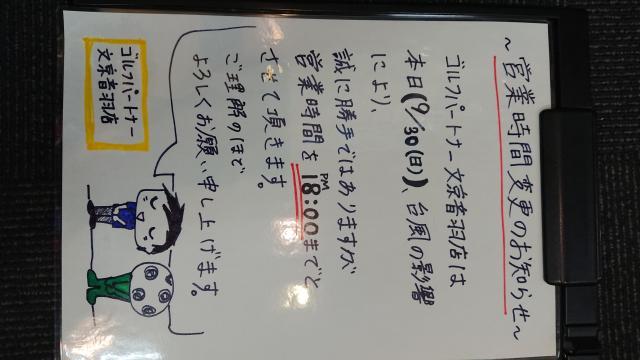 ～営業時間変更のお知らせ～
ゴルフパートナー文京音羽店は
本日(9/30(日))、台風の影響
により、
誠に勝手ではありますが
営業時間をPM18:00までと
させて頂きます。
ご理解のほど
よろしくお願い申し上げます。
ゴルフパートナー
文京音羽店